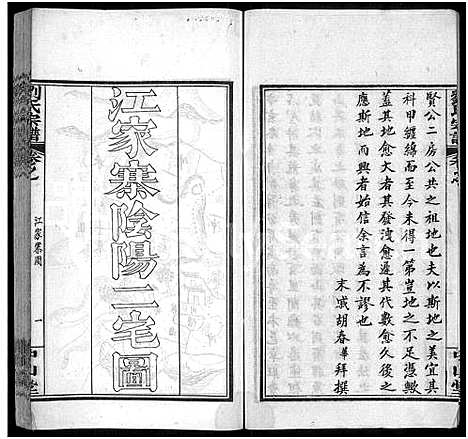 賢公二房公共之祖地也夫以斯地之美宜其
科甲纏綿而至今未得一第豈地之不足憑歟
蓋其地愈大者其發洩愈遲其代數愈久迄今
應斯地而興者始信余言為不謬也
末戚胡春華拜撰
江家寨陰陽二宅圖
劉氏宗譜
江家寨圖
一
中山堂